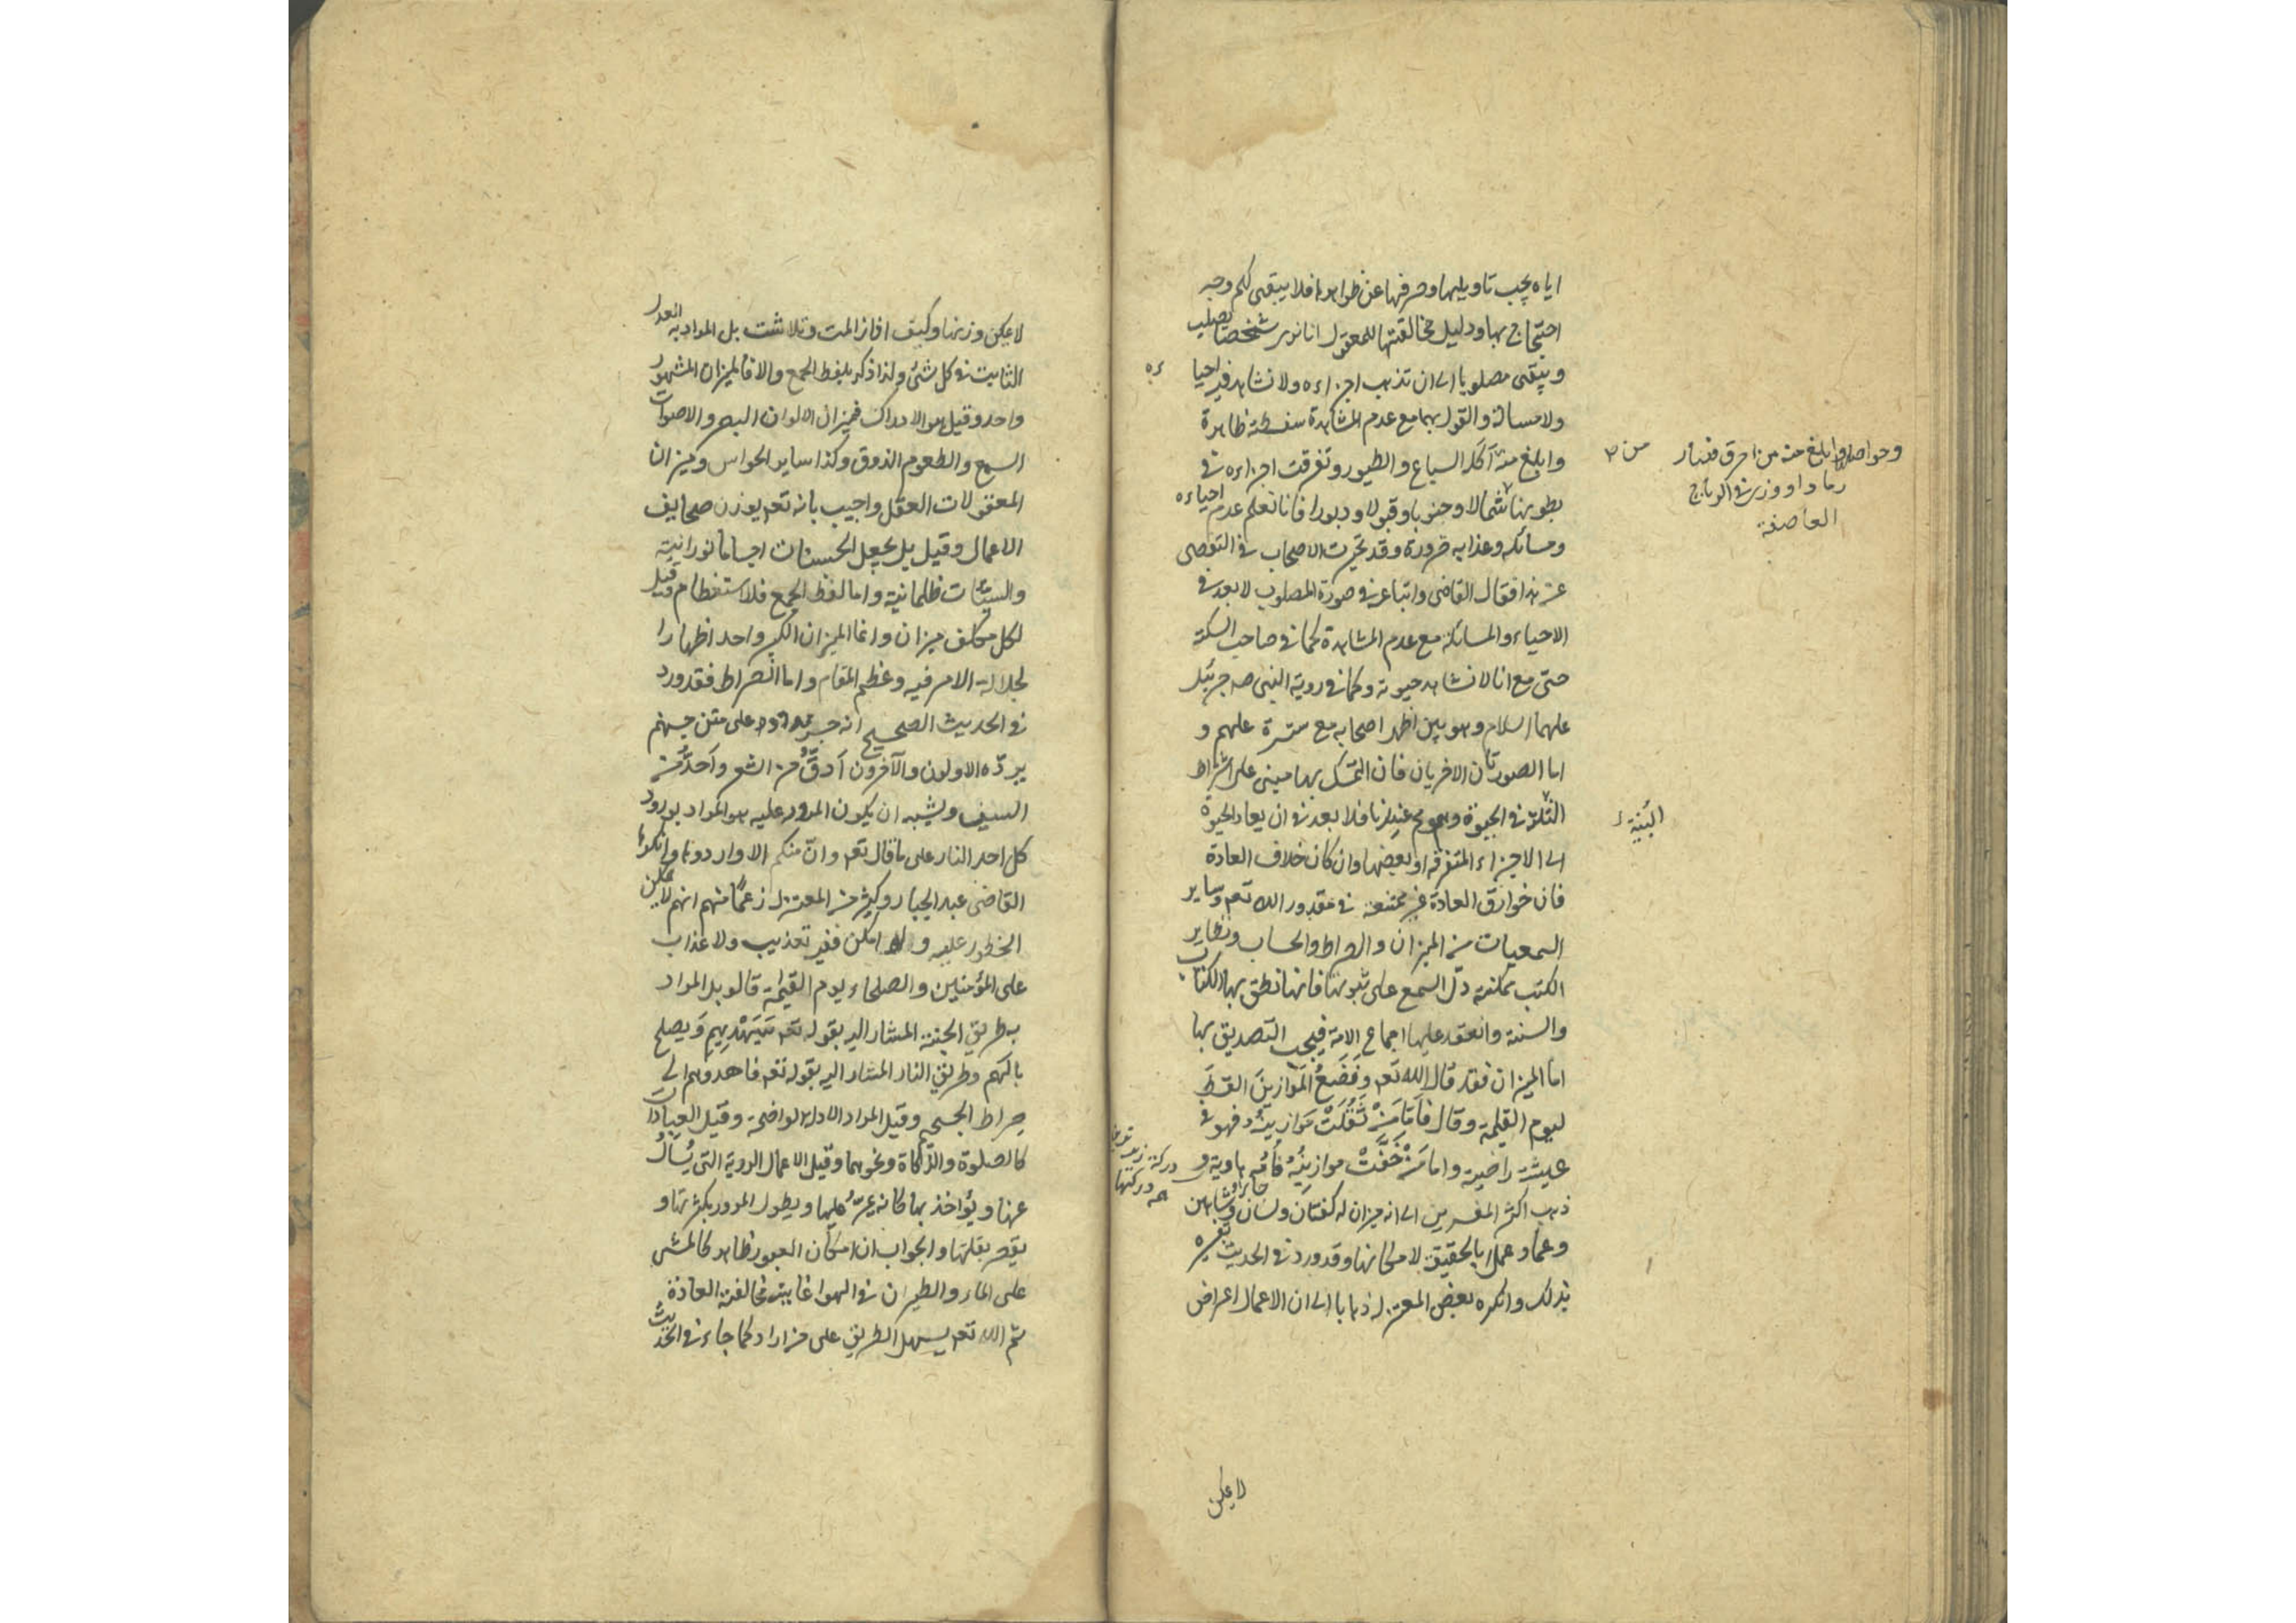 اياه يجب تاويلها وصرفها عن ظواهرها فلا يبقى لكم وجه
احتجاج بها ودليل مخالفتها للمعقول انا نرى شخصا يصلب
ويبقى مصلوبا الى ان تذهب اجزاءه ولا نشاهد فيه احياء
ولا مسالة والقول بهما مع عدم المشاهدة سفسطة ظاهرة
وابلغ منه آكله السباع والطيور وتفرقت اجزاءه فى
بطونها شمالا وجنوبا وقبولا ودبورا فانا نعلم عدم احياءه
ومسائلته وعذابه ضرورة وقد تحيرت الاصحاب فى التفصى
عن هذا فقال القاضى واتباعه فى صورة المصلوب لا بعد فى
الاحياء والمسائلة مع عدم المشاهدة كما فى صاحب السكتة
حتى مع انا لا نشاهد حيوته وكما فى روية النبى صه جبرئيل
عليهما السلام وهو بين اظهر اصحابه مع ستره عليهم و
اما الصورتان الاخريان فان التمسك بهما مبنى على اشتراط
فى الحيوة وهو مم عندنا فلا بعد فى ان يعاد الحيوة
الى الاجزاء المتفرقة او بعضها وان كان خلاف العادة
فان خوارق العادة غير ممتنعة فى مقدور الله تعه وساير
السمعيات من الميزان والصراط والحساب وتطاير
الكتب ممكنة دل السمع على ثبوتها فانها نطق بها الكتاب
والسنة وانعقد عليها اجماع الامة فيجب التصديق بها
اما الميزان فقد قال الله تعه وَنَضَعُ المَوَازِينَ القسطَ
ليوم القيمة وقال فَاَمّا مَنْ ثَقُلَتْ مَوَازِينُه فهو فى
عيشة راضية واما مَنْ خَفَّتْ موازِينُهُ فَاُمّه هاوية و
ذهب اكثر المفسرين الى انه ميزان له كفتان ولسان وشاهين
وعمّا و عملا بالحقيقة لامكانها وقد ورد فى الحديث تفسيره
بذلك وانكره بعض المعتزله ذهابا الى ان الاعمال اعراض
لا يمكن
وحواصلها وابلغ منه من احرق فصار
رمادا و وذرى فى الرياح
العاصفة
البنية
لا يمكن وزنها وكيف اذا زالت وتلاشت بل المراد به العدل
الثابت فى كل شئ ولذا ذكر بلفظ الجمع والا فالميزان المشهور
واحد وقيل هو الادراك فميزان الالوان البصر والاصوات
السمع والطعوم الذوق وكذا ساير الحواس وميزان
المعقولات العقل واجيب بانه تعه يوزن صحايف
الاعمال وقيل بل يجعل الحسنات اجساما نورانية
والسيئات ظلمانية واما لفظ الجمع فللاستعظام وقيل
لكل مكلف ميزان وانما الميزان الكبير واحد اظهارا
لجلالة الامر فيه وعظم المقام واما الصراط فقد ورد
فى الحديث الصحيح انه جسر ممدود على متن جهنم
يردّه الاولون والآخرون اَدَقُّ من الشعر واَحَدُّ من
السيف ويشبه ان يكون المرور عليه هو المراد بورود
كل احد النار على ما قال تعه وانّ منكم الا واردها وانكره
القاضى عبد الجبار وكثير من المعتزلة زعمًا منهم انه لا يمكن
الخطور عليه ولو امكن ففيه تعذيب ولا عذاب
على المؤمنين والصلحاء يوم القيمة قالو بل المراد
به طريق الجنة المشار اليه بقوله تعه سَيَهْدِيهِم وَيصلح
بالهم وطريق النار المشار اليه بقوله تعه فاهدوهم الى
صِراط الجحيم وقيل المراد الادلة الواضحة وقيل العبادات
كالصلوة والزكاة ونحوهما وقيل الاعمال الردية التى يُسْاَلُ
عنها ويُؤاخذ بها كانه يمرّ عليها ويطول المرور بكثرتها و
يقصر بقلتها والجواب ان امكان العبور ظاهر كالمشى
على الماء والطيران فى الهوا غايته مخالفة العادة
ثم الله تعه يسهل الطريق على من اراد كما جاء فى الحديث